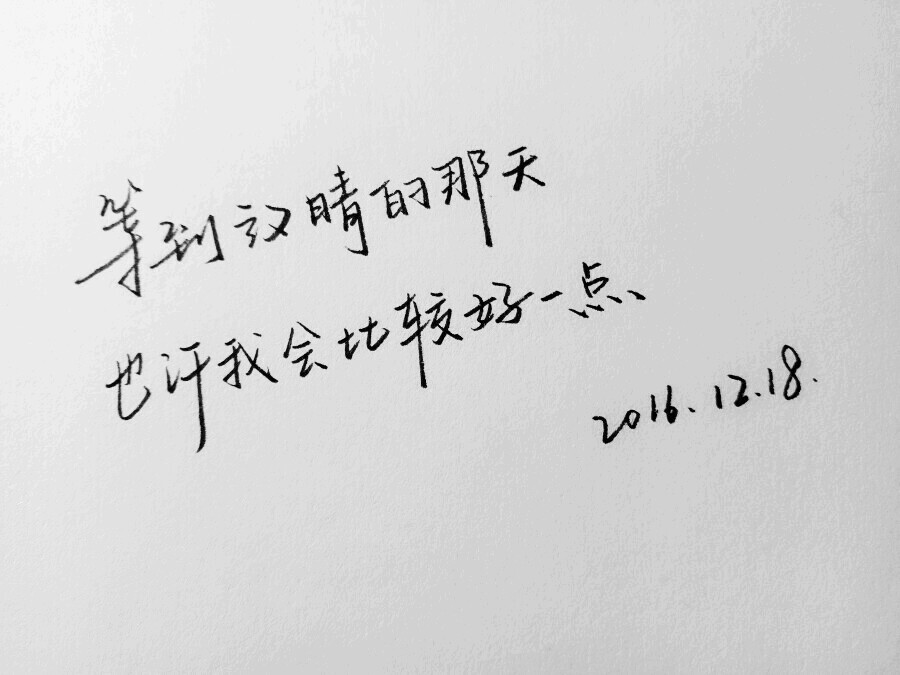 等到放晴的那天
也许我会比较好一点
2016.12.18.